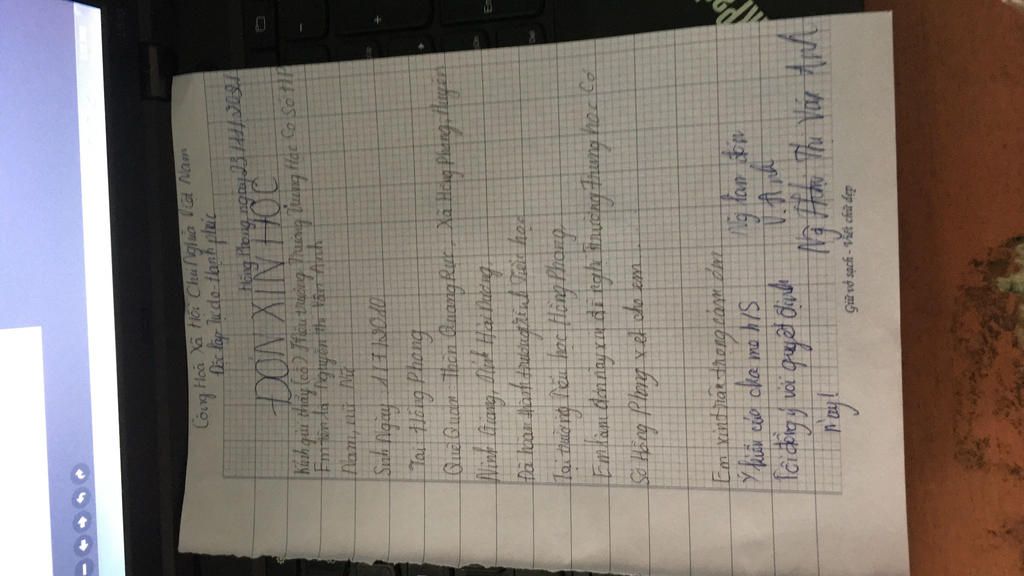 Cộng Hoà Xã Hội Chủ Nghĩa Việt Nam
Độc lập Tự do Hạnh phúc
Hồng Phong, ngày 23/11/2021
ĐƠN XIN HỌC
Kính gửi thầy (cô) Hiệu trưởng Trường Trung Học Cơ Sở HP
Em tên là Nguyễn thị Vân Anh
Nam, nữ Nữ
Sinh Ngày 11/7/2010
Tại Hồng Phong
Quê Quán Thôn Xã Hồng Phong, Huyện
Ninh Giang, tỉnh Hải Dương
Đã hoàn thành chương trình Tiểu học
Tại trường Tiểu học Hồng Phong
Em làm đơn này xin đề nghị Trường Trung học Cơ
Sở Hồng Phong xét cho em
Em xin trân trọng cảm ơn
Ý kiến của cha mẹ h/s
Người làm đơn
V.Anh
Tôi đồng ý với quyết định
này!
Thị Vân Anh
Giữ vở sạch - Viết chữ đẹp